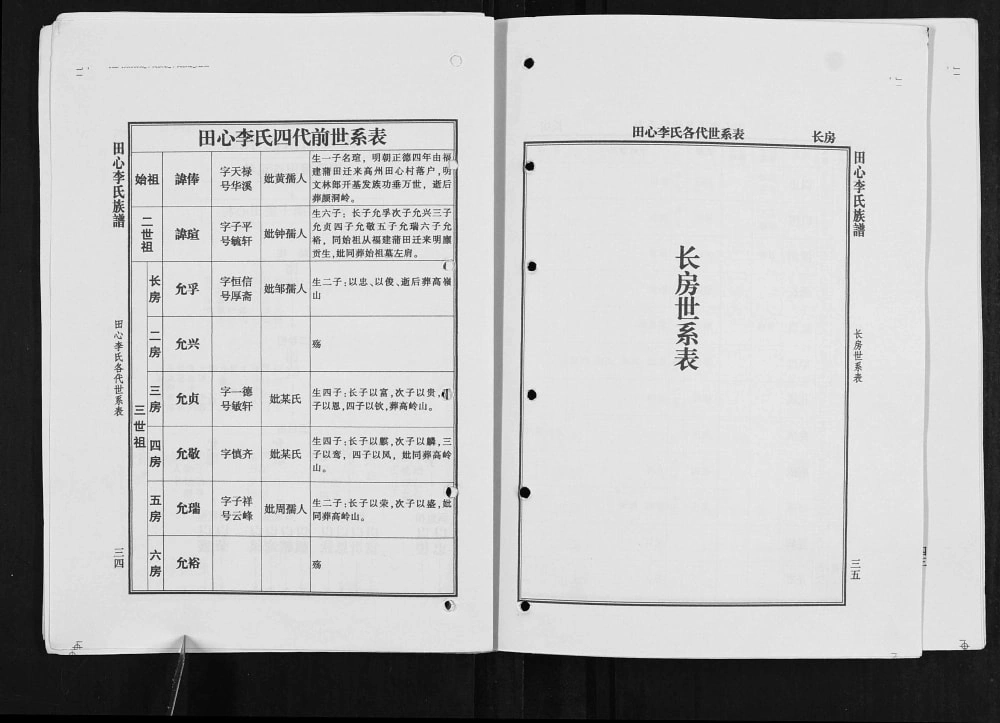 田心李氏族譜
田心李氏各代世系表
三四
田心李氏四代前世系表
始祖 諱俸 字天禄 号华溪 妣黄孺人
生一子名瑄，明朝正德四年由福
建莆田迁来高州田心村落户，明
文林郎开基发族功垂万世，逝后
葬颜洞岭。
二世祖 諱瑄 字子平 号毓轩 妣钟孺人
生六子；长子允孚次子允兴三子
允贞四子允敬五子允瑞六子允
裕，同始祖从福建莆田迁来明廪
贡生,妣同葬始祖墓左肩。
三世祖
长房 允孚 字恒信 号厚斋 妣邹孺人
生二子:以忠、以俊、逝后葬高嶺
山
二房 允兴 殇
三房 允贞 字一德 号敏轩 妣某氏
生四子:长子以富,次子以贵,
子以恩,四子以钦,葬高岭山。
四房 允敬 字慎齐 妣某氏
生四子:长子以麒,次子以麟,三
子以鸾，四子以凤，妣同葬高岭
山。
五房 允瑞 字子祥 号云峰 妣周孺人
生二子:长子以荣,次子以盛,妣
同葬高岭山。
六房 允裕 殇
田心李氏各代世系表 长房
长房世系表
田心李氏族譜
长房世系表
三五